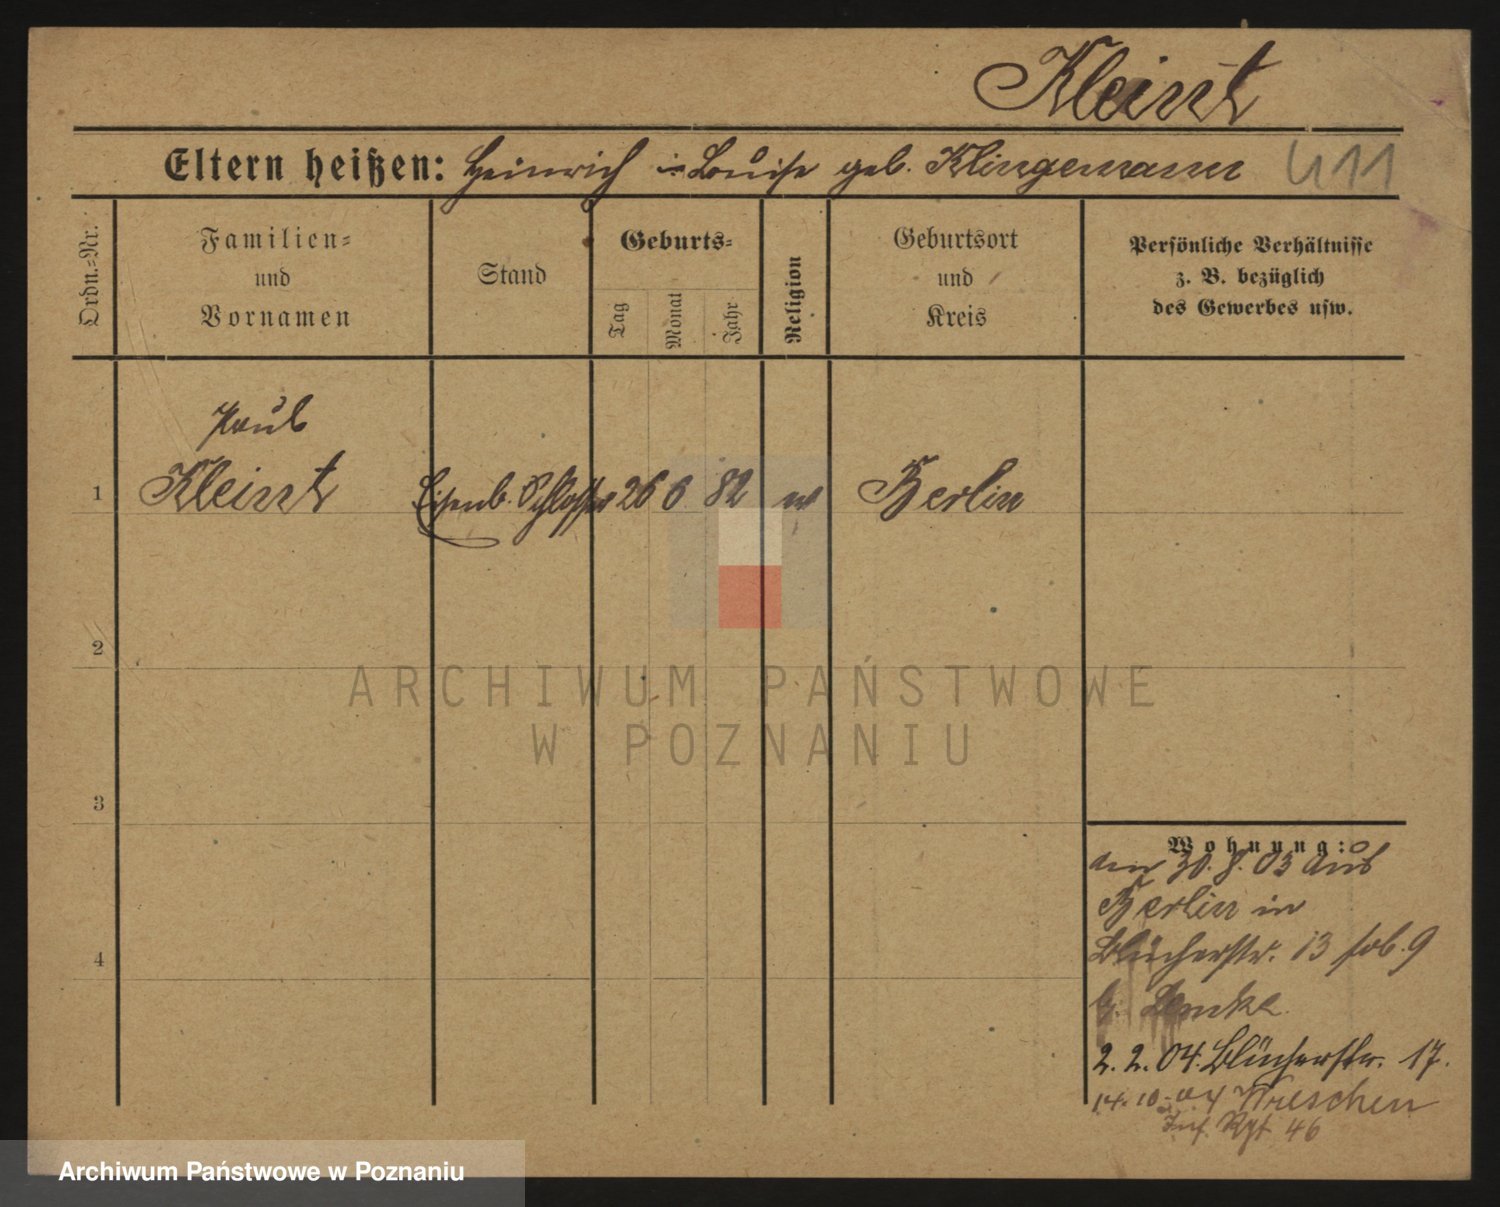 Kleint
Eltern heißen: Heinrich u. Louise geb. Klingemann 411
Ordn.=Nr.
Familien=
und
Vornamen
Stand
Geburts=
Tag
Monat
Jahr
Religion
Geburtsort
und
Kreis
Persönliche Verhältnisse
z. B. bezüglich
des Gewerbes usw.
Paul
1 Kleint Eisenb. Schlosser 26 6 82 ev Berlin
2
3
4
Wohnung:
am 30. 8. 03 aus
Berlin in
Blücherstr. 13 9
b. Lemke
2. 2. 04. Blücherstr. 17.
14. 10. 04 Wreschen
Inf. Rgt 46
ARCHIWUM PAŃSTWOWE
W POZNANIU
Archiwum Państwowe w Poznaniu